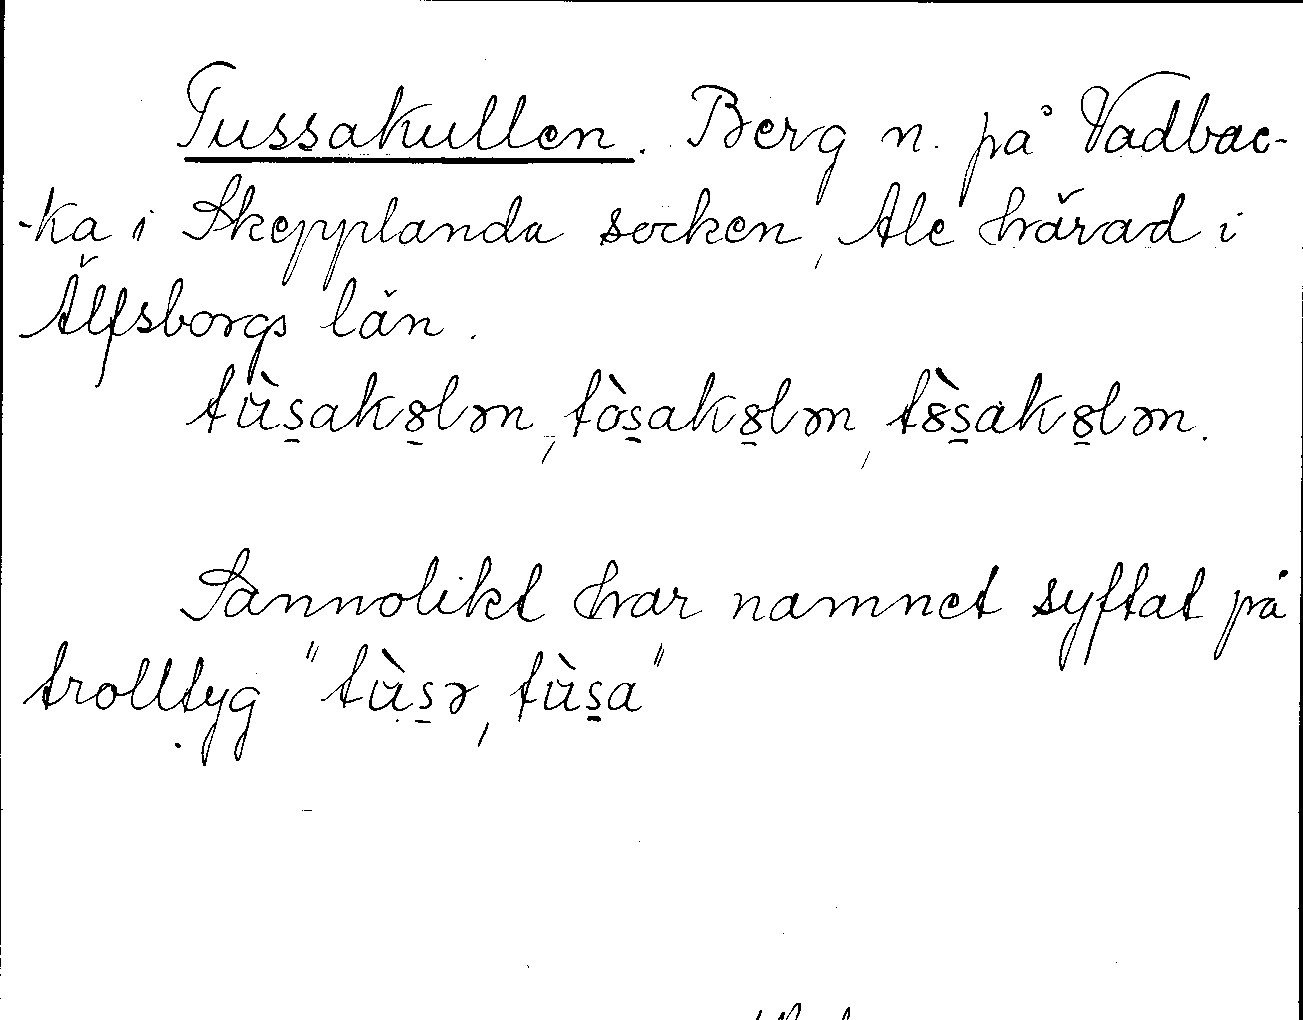 Tussakullen. Berg n. på Vadbac-
-ka i Skepplanda socken, Ale härad i
Älfsborgs län.
tùs̱ako̱lən, tòs̱ak8̱lən, t8̀s̱ak8̱lən.
Sannolikt har namnet syftat på
trolltyg "tùs̱ə, tùs̱a"